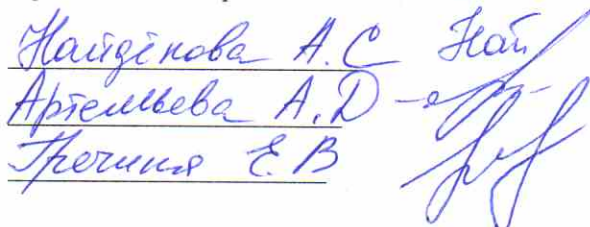 Найдёнова А.С Най
Артемьева А.Д
Гречина Е.В